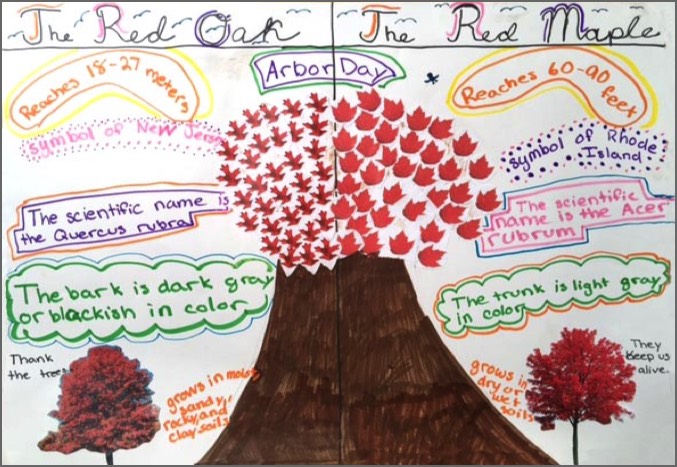 The Red Oak
The Red Maple
Arbor Day
Reaches 18-27 meters
symbol of New Jersey
The scientific name is
the Quercus rubra
The bark is dark gray
or blackish in color
Thank
the trees
grows in moist
sandy,
rocky, and
clay soils
Reaches 60-90 feet
symbol of Rhode
Island
The scientific
name is the Acer
rubrum
The trunk is light gray
in color
They
keep us
alive.
grows in
dry or
wet
soils